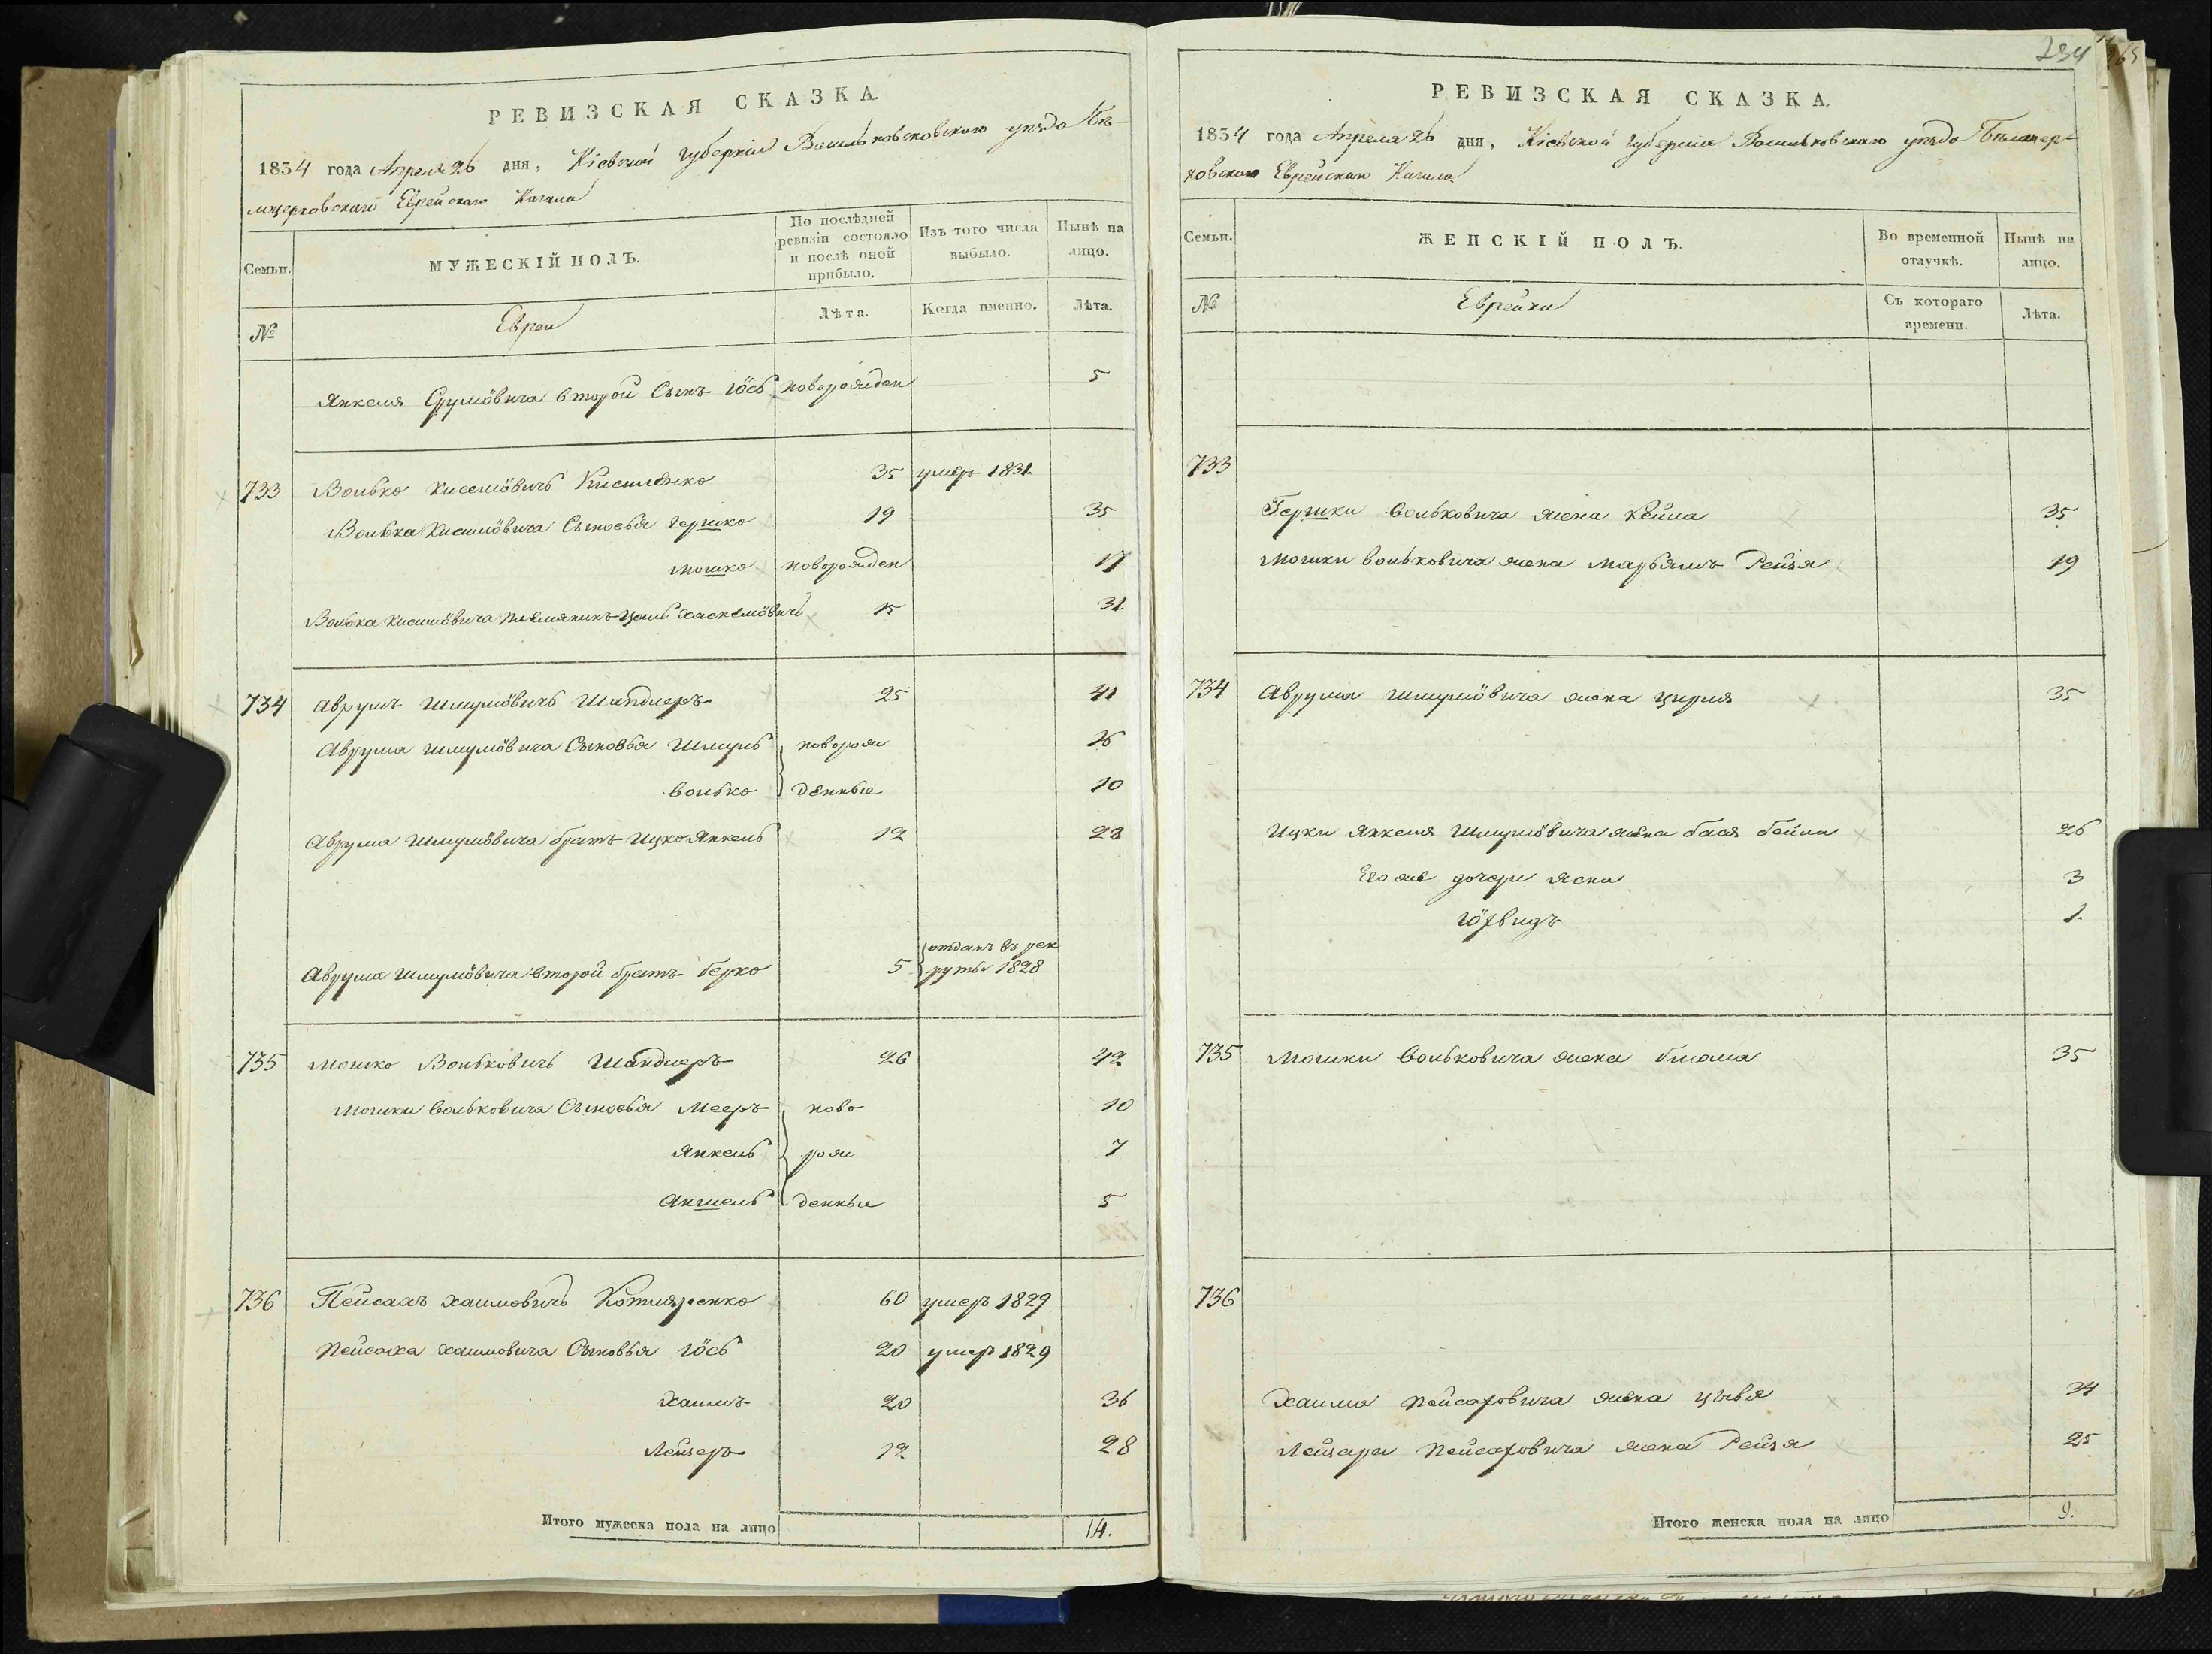 РЕВИЗСКАЯ СКАЗКА.
1834 года Апреля 26 дня, Кіевской губерніи Васильковсковского уѣзда Бѣ-
лоцерковскаго Еврейскаго Кагала
Семьи.
МУЖЕСКІЙ ПОЛЪ.
По послѣдней ревизіи состояло и послѣ оной прибыло.
Изъ того числа выбыло.
Нынѣ на лицо.
№
Евреи
Лѣта.
Когда именно.
Лѣта.
Янкеля Срулёвича второй Сынъ Іось новорожден 5
733 Волько Киселіовичь Кисиленко 35 умеръ 1831.
Волька Кисилiовича Сыновья Гершко 19 35
Мошко новорожден 17
Волька Кисилiовича племяникъ Цаль Хаскелiовичь 15 31
734 Аврумъ Шмулiовичь Шандлеръ 25 41
Аврума Шмулiовича Сыновья Шмуль новорож 16
Волько денные 10
Аврума Шмулiовича братъ Ицко Янкель 12 28
отданъ въ рек
Аврума Шмулiовича второй братъ Берко 5 руты 1828
735 Мошко Вольковичь Шандлеръ 26 42
Мошки Вольковича Сыновья Мееръ ново 10
Янкель рож 7
Аншель денные 5
736 Пейсахъ Хаимовичь Котляренко 60 умеръ 1829
Пейсаха Хаимовича Сыновья Іось 20 умер 1829
Хаимъ 20 36
Лейзеръ 12 28
Итого мужеска пола на лицо 14.
234
РЕВИЗСКАЯ СКАЗКА.
1834 года Апреля 26 дня, Кіевской губерніи Васильковскаго уѣзда Бѣлоцер-
ковскаго Еврейскаго Кагала
Семьи.
ЖЕНСКІЙ ПОЛЪ.
Во временной отлучкѣ.
Нынѣ на лицо.
№
Еврейки
Съ котораго времени.
Лѣта.
733
Гершки Вольковича жена Кейла 35
Мошки Вольковича жена Марьямъ Рейзя 19
734 Аврума Шмулiовича жена Цирля 35
Ицки Янкеля Шмулiовича жена Бася Бейла 26
Его же дочери 3
1.
735 Мошки Вольковича жена Блюма 35
736
Хаима Пейсаховича жена Цывя 34
Лейзера Пейсаховича жена Рейзя 25
Итого женска пола на лицо 9.